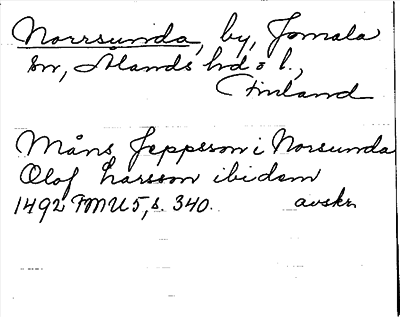 Norrsunda, by, Jomala
sn, Ålands hd o l.,
Finland
Måns Jeppsson i Norsunda
Olof Larsson ibidem
1492 FMU 5, s. 340. avskr.